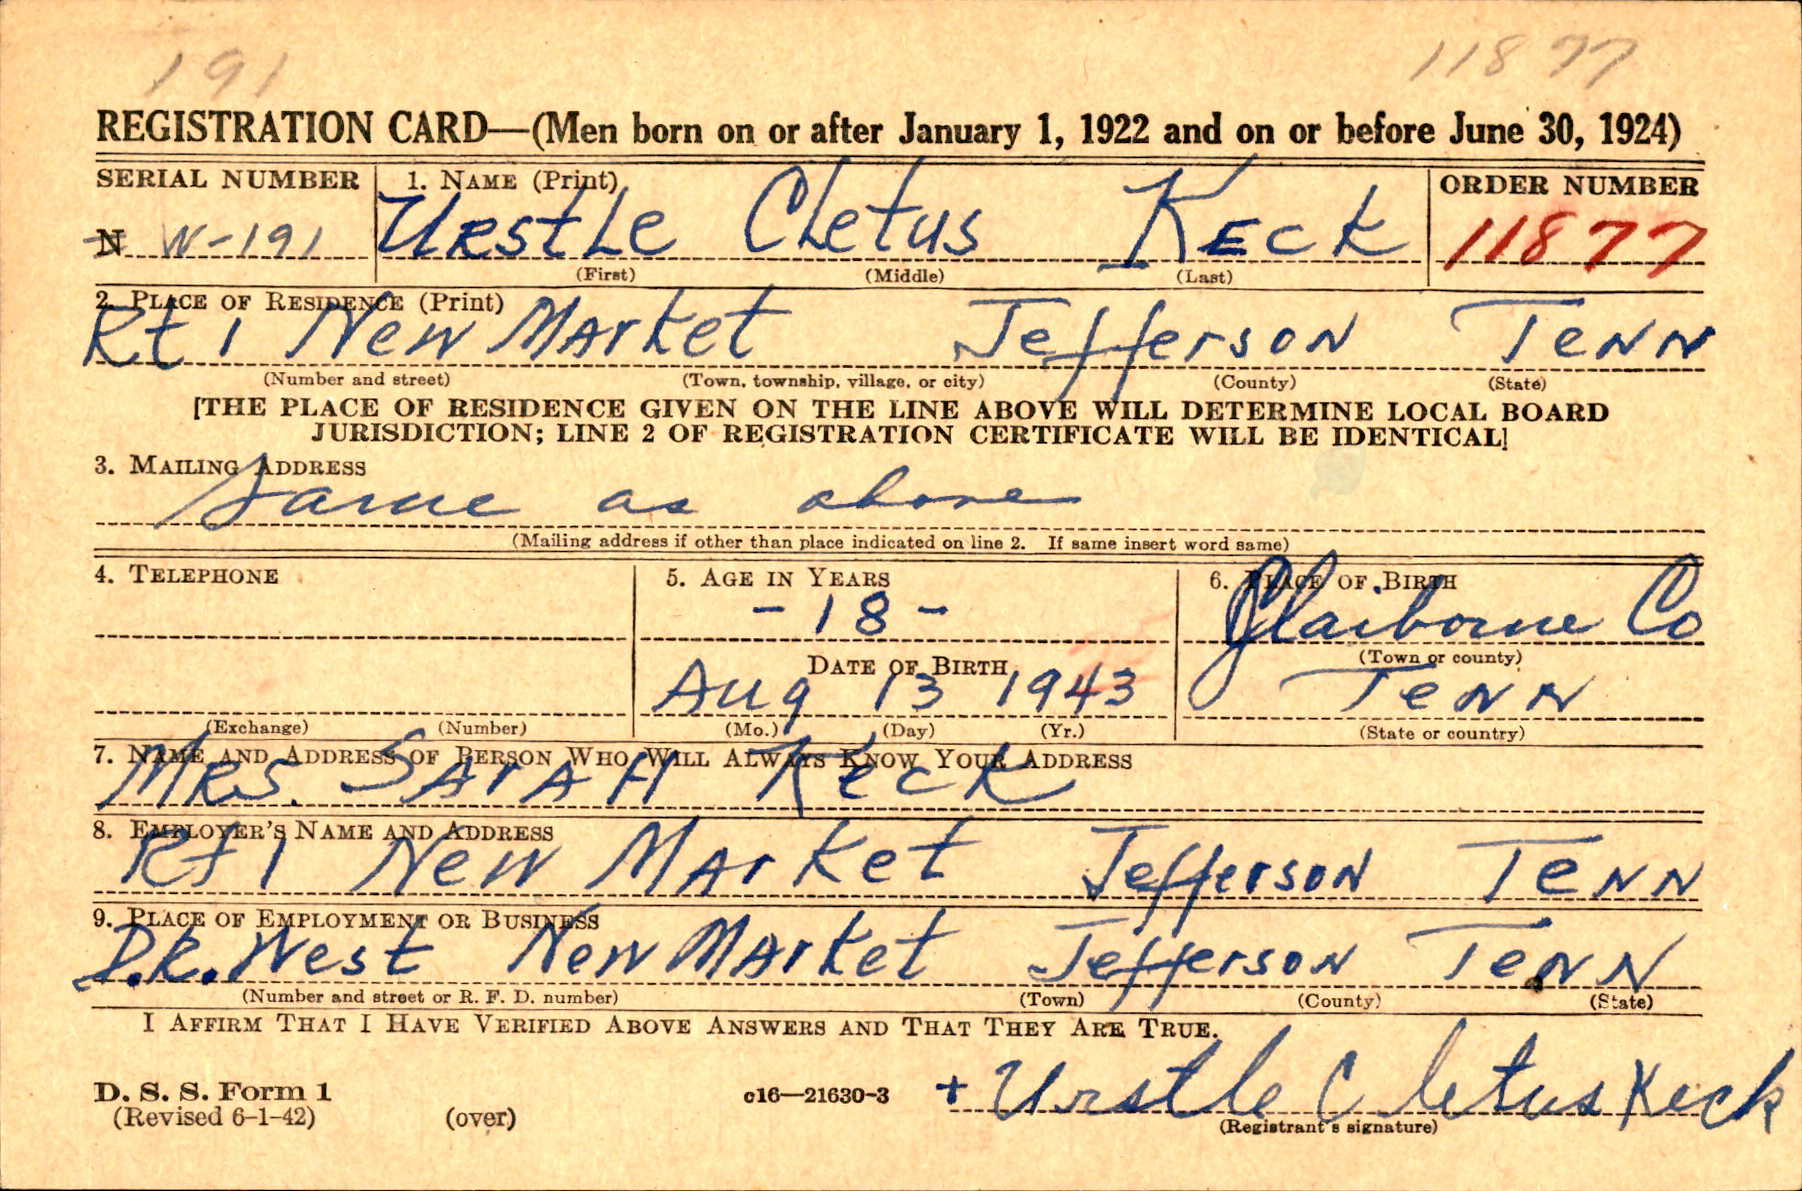 191 11877
REGISTRATION CARD—(Men born on or after January 1, 1922 and on or before June 30, 1924)
SERIAL NUMBER 1. NAME (Print) ORDER NUMBER
N W-191 Urstle Cletus Keck 11877
(First) (Middle) (Last)
2. PLACE OF RESIDENCE (Print)
Rt 1 New Market Jefferson Tenn
(Number and street) (Town, township, village, or city) (County) (State)
[THE PLACE OF RESIDENCE GIVEN ON THE LINE ABOVE WILL DETERMINE LOCAL BOARD
JURISDICTION; LINE 2 OF REGISTRATION CERTIFICATE WILL BE IDENTICAL]
3. MAILING ADDRESS
Same as above
(Mailing address if other than place indicated on line 2. If same insert word same)
4. TELEPHONE 5. AGE IN YEARS 6. PLACE OF BIRTH
- 18 - Claiborne Co
DATE OF BIRTH (Town or county)
Aug 13 1943 Tenn
(Exchange) (Number) (Mo.) (Day) (Yr.) (State or country)
7. NAME AND ADDRESS OF PERSON WHO WILL ALWAYS KNOW YOUR ADDRESS
Mrs. Sarah Keck
8. EMPLOYER'S NAME AND ADDRESS
Rt 1 New Market Jefferson Tenn
9. PLACE OF EMPLOYMENT OR BUSINESS
D.R. West New Market Jefferson Tenn
(Number and street or R. F. D. number) (Town) (County) (State)
I AFFIRM THAT I HAVE VERIFIED ABOVE ANSWERS AND THAT THEY ARE TRUE.
D. S. S. Form 1 c16—21630-3 + Urstle Cletus Keck
(Revised 6-1-42) (over) (Registrant's signature)